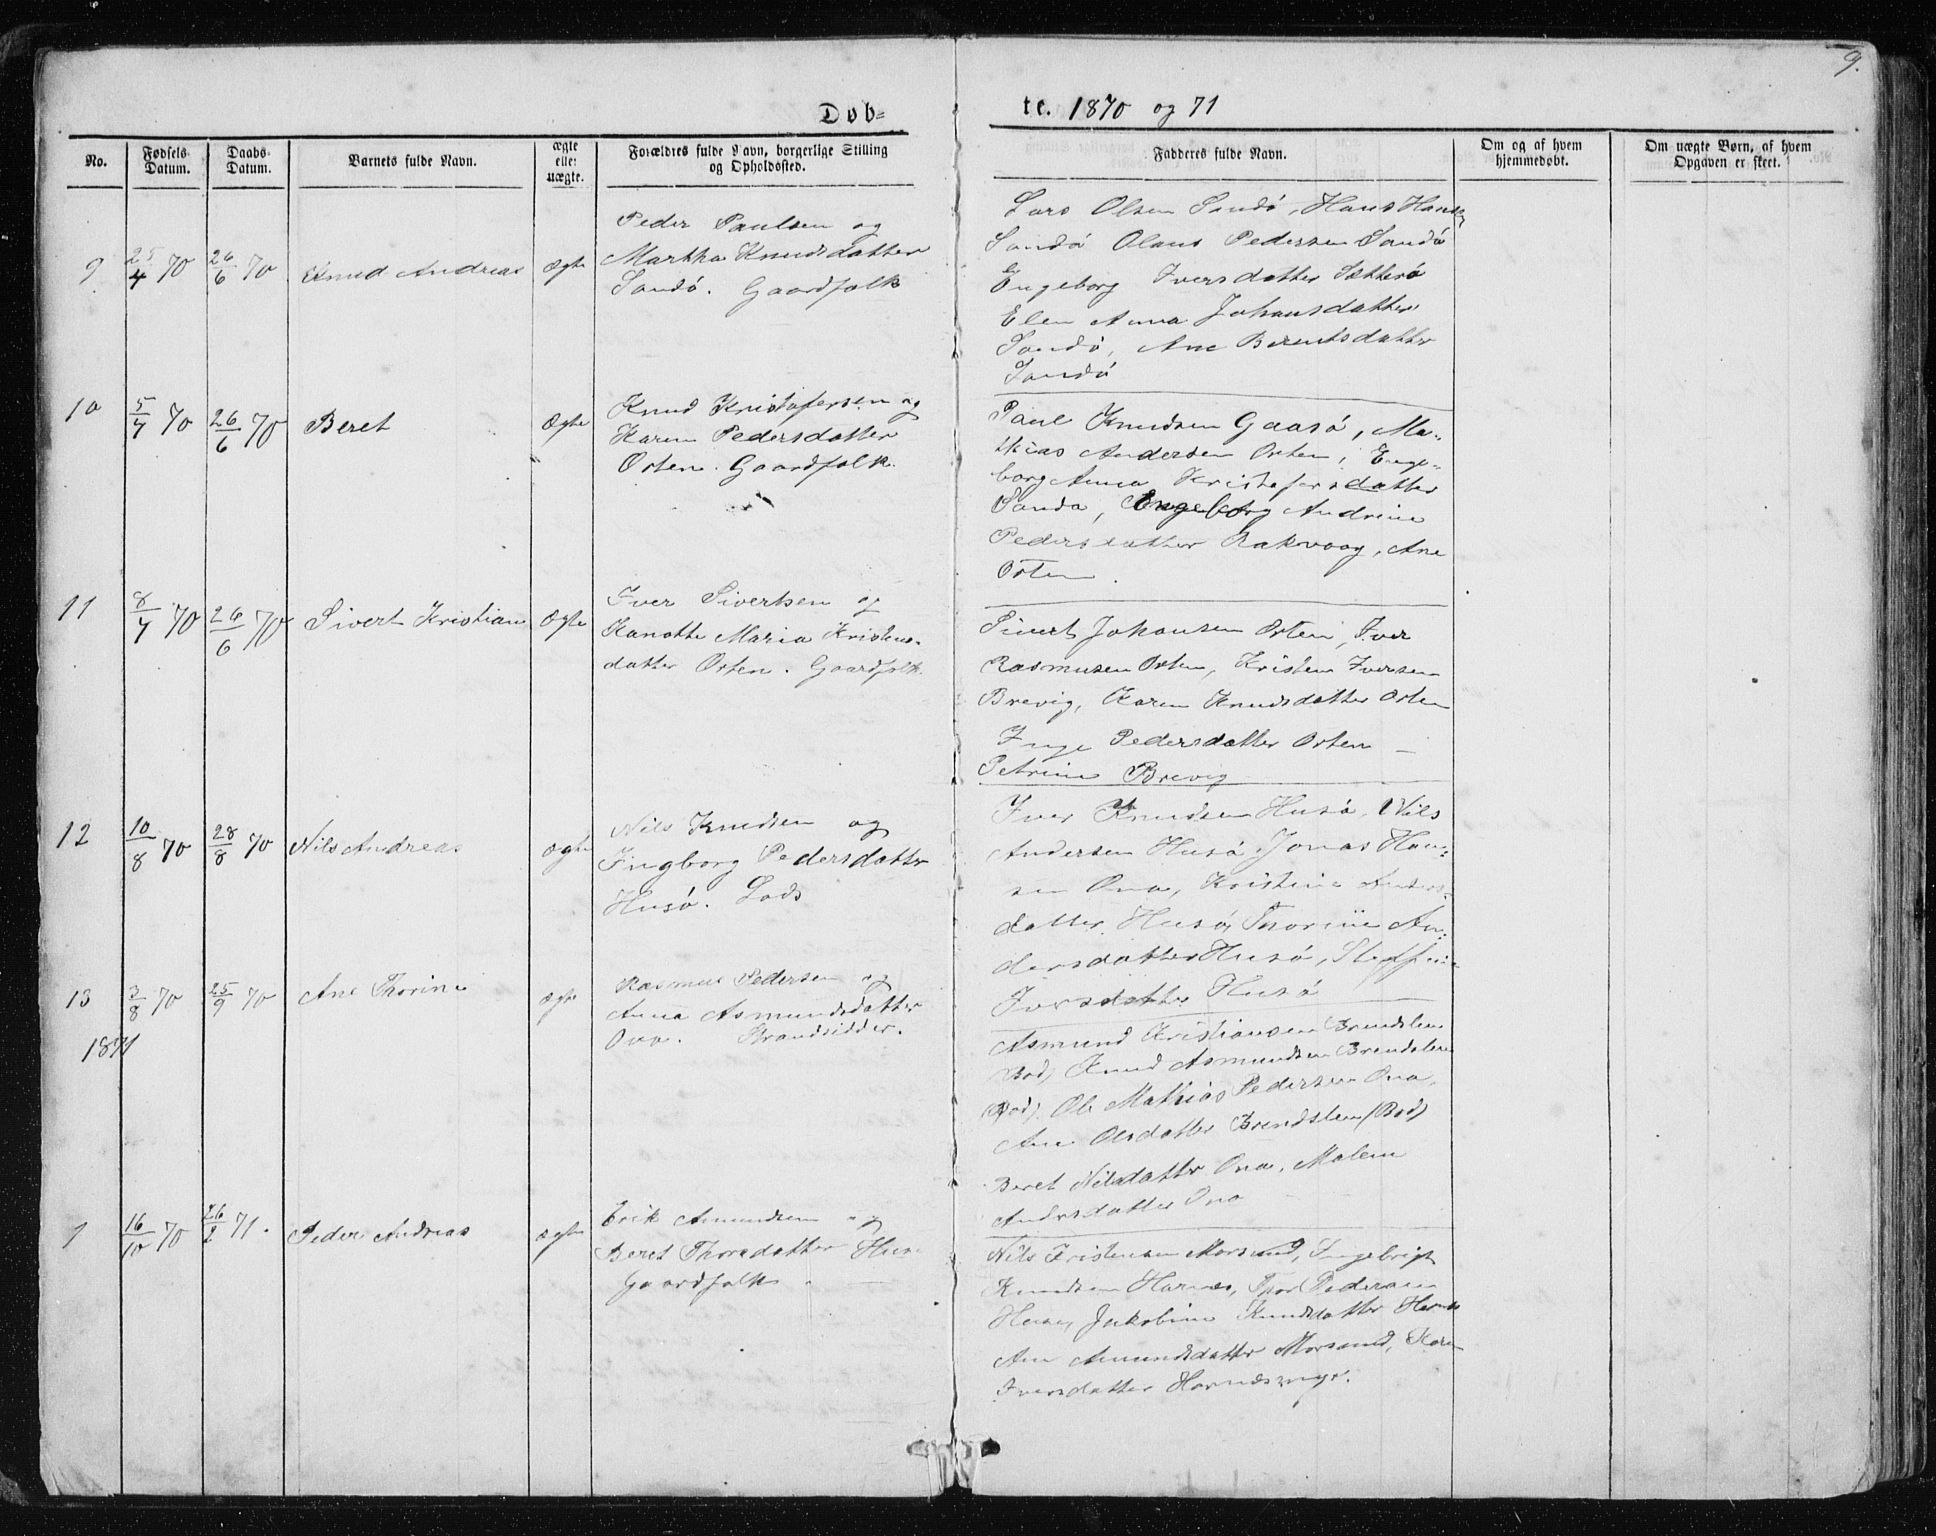 9.
Døb-
te. 1870 og 71
No.
Fødsels-
Datum.
Daabs-
Datum.
Barnets fulde Navn.
ægte
eller
uægte.
Forældres fulde Navn, borgerlige Stilling
og Opholdssted.
Fadderes fulde Navn.
Om og af hvem
hjemmedøbt.
Om uægte Børn, af hvem
Opgaven er skeet.
9
25/4 70
26/6 70
Knud Andreas
ægte
Peder Paulsen og
Martha Knudsdatter
Sandø. Gaardfolk
Lars Olsen Sandø, Hans Hansen
Sandø Olaus Pedersen Sandø
Engeborg Iversdatter Sætterø
Elen Anna Johansdatter
Sandø, Ane Berentsdatter
Sandø
10
5/7 70
26/6 70
Beret
ægte
Knud Kristofersen og
Karen Pedersdatter
Orten. Gaardfolk.
Paul Knudsen Gaasø, Ma-
thias Andersen Orten, Enge-
borg Anna Kristofersdatter
Sandø, Engeborg Andrine
Pedersdatter Rakvaag, Ane
Orten.
11
8/7 70
26/6 70
Sivert Kristian
ægte
Iver Sivertsen og
Hanatte Maria Kristens-
datter Orten. Gaardfolk.
Sivert Johansen Orten, Iver
Rasmusen Orten, Kristen Iversen
Brevig, Karen Knudsdatter Orten
Inge Pedersdatter Orten –
Petrine Brevig
12
10/8 70
28/8 70
Nils Andreas
ægte
Nils Knudsen og
Ingborg Pedersdatter
Husø. Lods
Iver Knudsen Husø, Nils
Andersen Husø, Jonas Han-
sen Ona, Kristine Anders-
datter Husø, Thorine An-
dersdatter Husø, Steffine
Iversdatter Husø
13
3/8 70
25/9 70
Ane Thorine
ægte
Rasmus Pedersen og
Anna Asmundsdatter
Ona. Strandsidder.
Asmund Kristiansen Brendslen
(Bod) Knud Asmundsen Brendslen
(Bod). Ole Mathias Pedersen Ona,
Ane Olsdatter Brendslen (Bod)
Beret Nilsdatter Ona, Malene
Andersdatter Ona
1871
1
16/10 70
26/2 71.
Peder Andreas
ægte
Erik Amundsen og
Beret Thorsdatter Huse
Gaardfolk.
Nils Kristensen Morsund, Ingebrigt
Knudsen Harnes, Thor Pedersen
Huse, Jakobine Knudsdatter Harnes
Ane Amundsdatter Morsund, Karen
Iversdatter